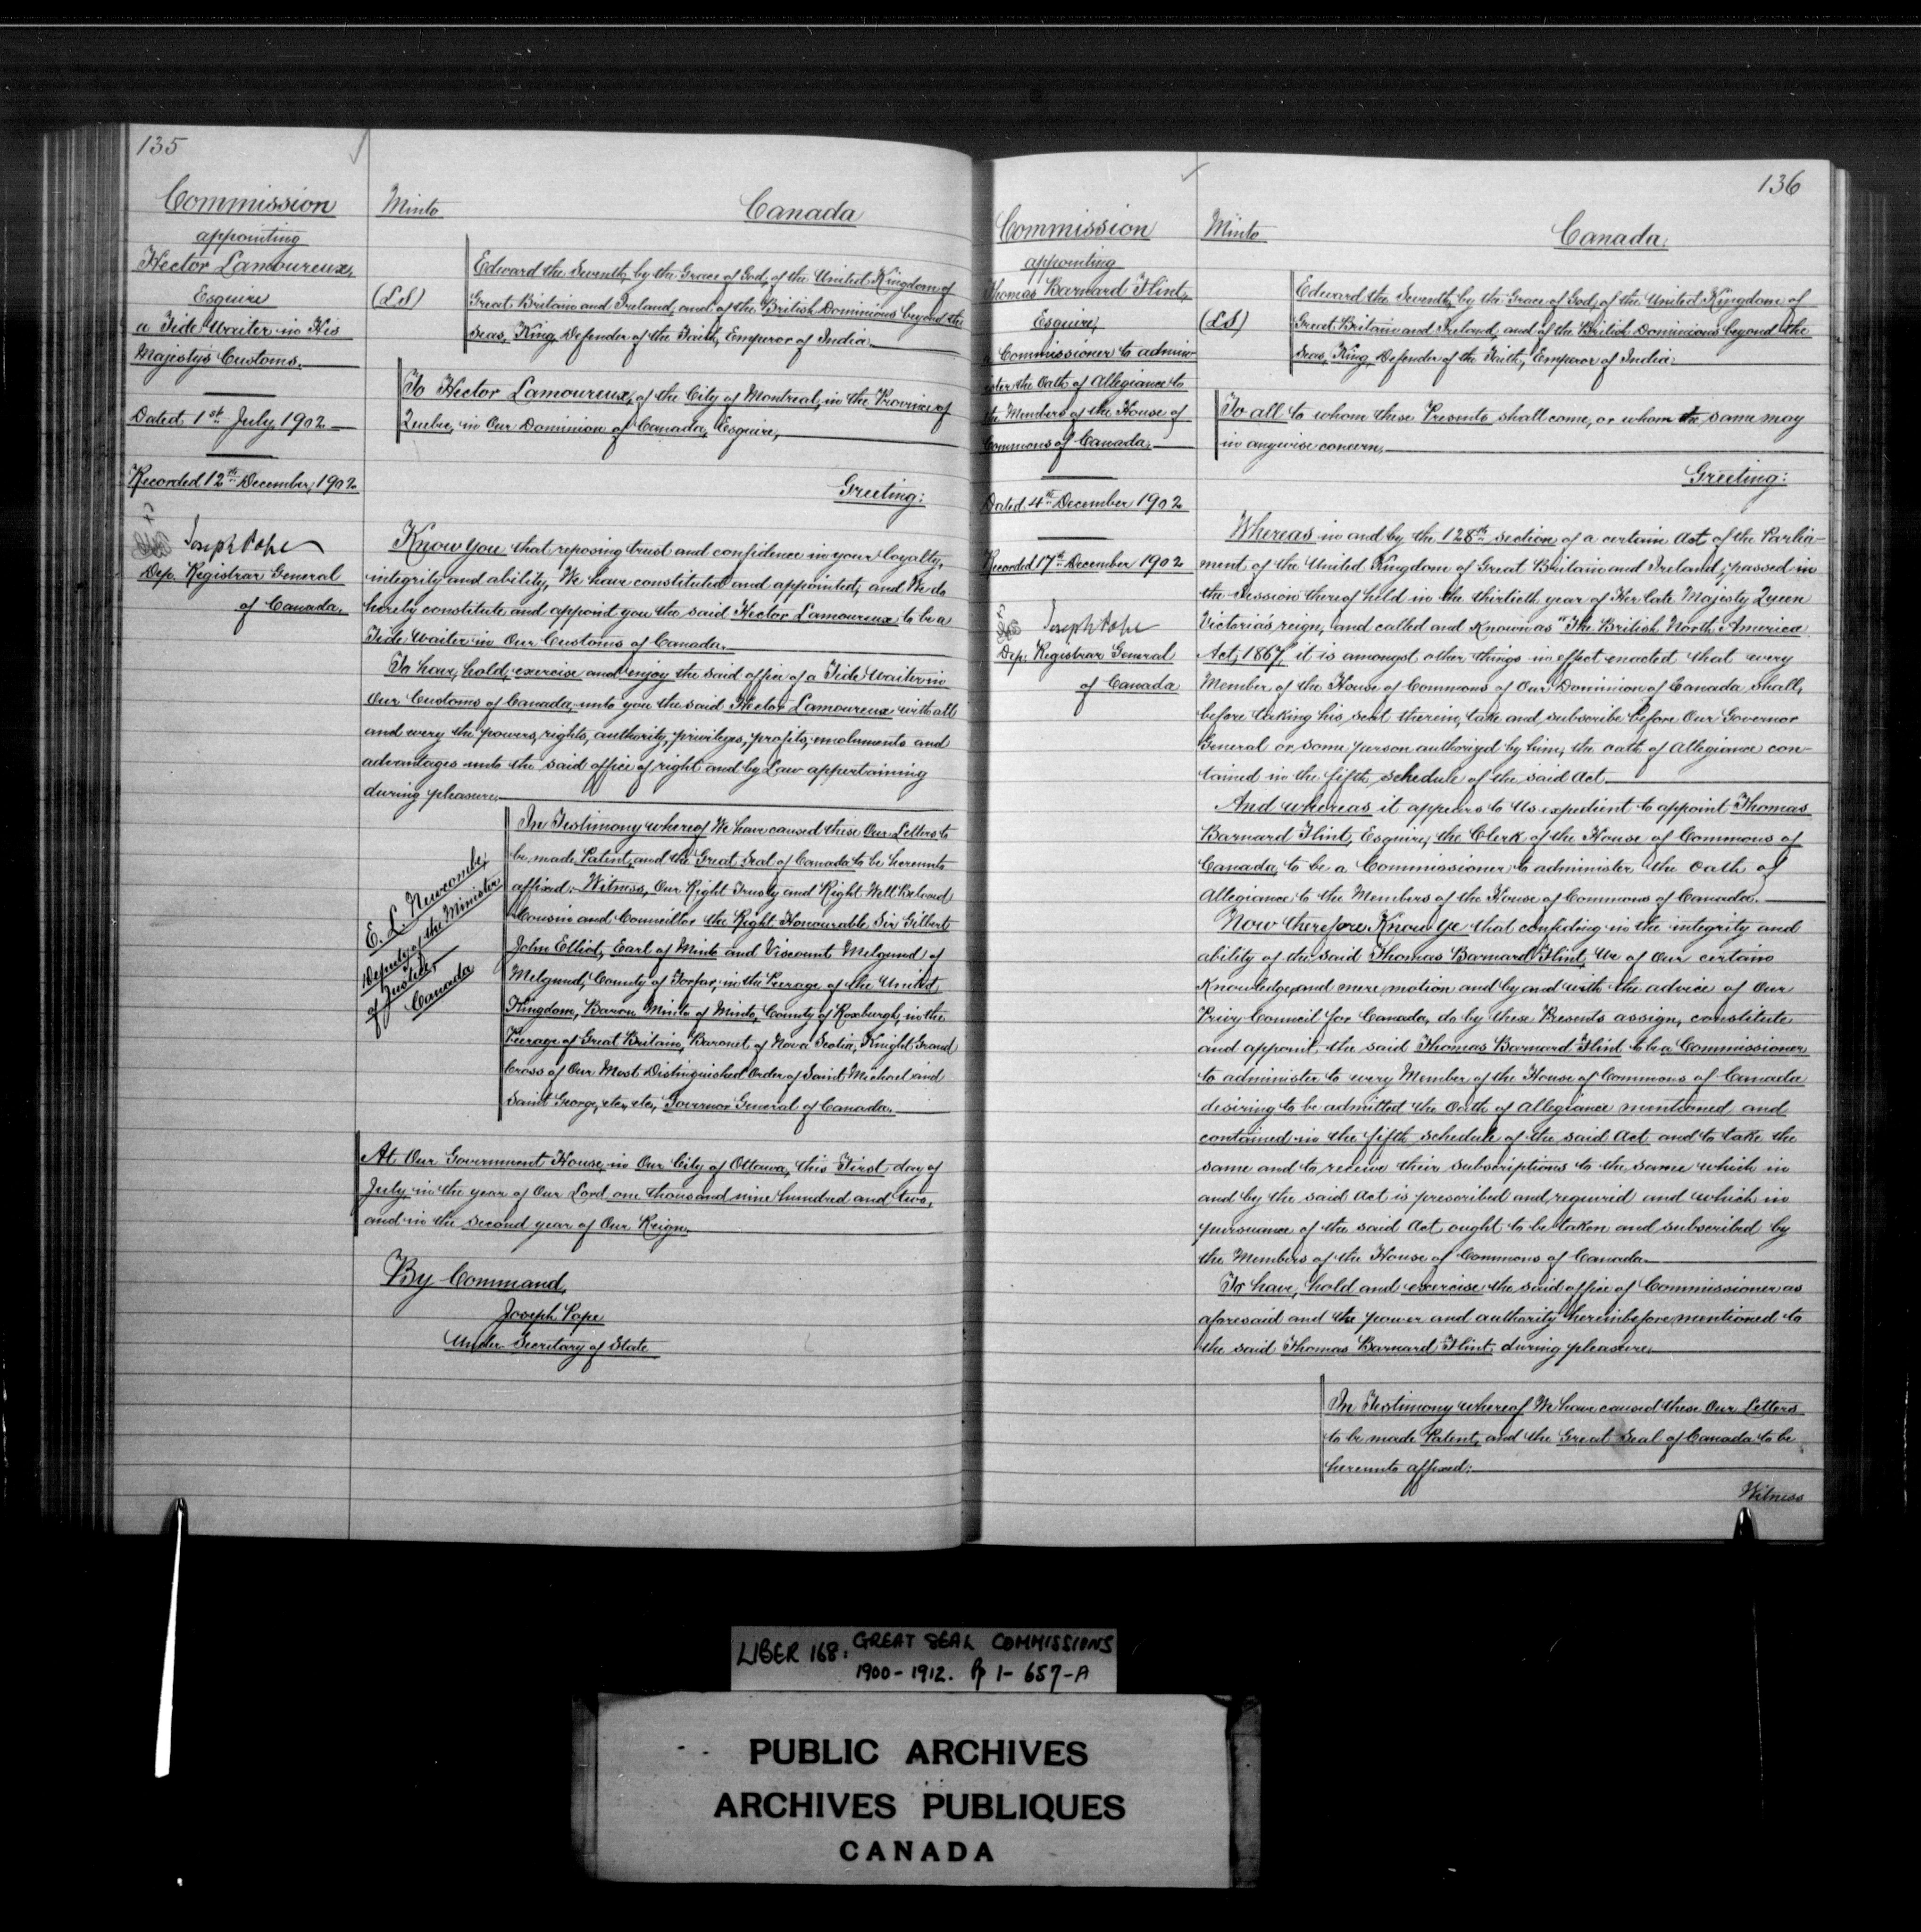 135
Commission
appointing
Hector Lamoureux,
Esquire
a Tide Waiter in His
Majesty's Customs.
Dated 1st July, 1902
Recorded 12th December, 1902
Joseph Pope
Dep. Registrar General
of Canada.
Minto
Canada
(LS)
Edward the Seventh, by the Grace of God, of the United Kingdom of
Great Britain and Ireland, and of the British Dominions beyond the
Seas, King, Defender of the Faith, Emperor of India.
To Hector Lamoureux, of the City of Montreal, in the Province of
Quebec, in Our Dominion of Canada, Esquire,
Greeting:
Know you that reposing trust and confidence in your loyalty,
integrity and ability, We have constituted and appointed, and We do
hereby constitute and appoint you the said Hector Lamoureux to be a
Tide Waiter in Our Customs of Canada.
To have, hold, exercise and enjoy the said office of a Tide Waiter in
Our Customs of Canada, unto you the said Hector Lamoureux with all
and every the powers, rights, authority, privileges, profits, emoluments and
advantages unto the said office of right and by Law appertaining
during pleasure.
E. L. Newcombe,
Deputy of the Minister
of Justice,
Canada
In Testimony whereof We have caused these Our Letters to
be made Patent, and the Great Seal of Canada to be hereunto
affixed: Witness, Our Right Trusty and Right Well Beloved
Cousin and Councillor the Right Honourable Sir Gilbert
John Elliot, Earl of Minto and Viscount Melgund of
Melgund, County of Forfar, in the Peerage of the United
Kingdom, Baron Minto of Minto, County of Roxburgh, in the
Peerage of Great Britain, Baronet of Nova Scotia, Knight Grand
Cross of Our Most Distinguished Order of Saint Michael and
Saint George, etc, etc, Governor General of Canada.
At Our Government House, in Our City of Ottawa, this First day of
July in the year of Our Lord one thousand nine hundred and two,
and in the second year of Our Reign.
By Command,
Joseph Pope
Under-Secretary of State
136
Commission
appointing
Thomas Barnard Flint,
Esquire,
a Commissioner to admin-
ister the Oath of Allegiance to
the Members of the House of
Commons of Canada.
Dated 4th December 1902
Recorded 17th December 1902
Joseph Pope
Dep. Registrar General
of Canada
Minto
Canada
(LS)
Edward the Seventh, by the Grace of God, of the United Kingdom of
Great Britain and Ireland, and of the British Dominions beyond the
Seas, King, Defender of the Faith, Emperor of India:
To all to whom these Presents shall come, or whom the same may
in anywise concern,
Greeting:
Whereas in and by the 128th section of a certain Act of the Parlia-
ment of the United Kingdom of Great Britain and Ireland, passed in
the session thereof held in the thirtieth year of Her late Majesty Queen
Victoria's reign, and called and known as "The British North America
Act, 1867" it is amongst other things in effect enacted that every
Member of the House of Commons of Our Dominion of Canada shall,
before taking his seat therein, take and subscribe before Our Governor
General or some person authorized by him, the oath of Allegiance con-
tained in the fifth schedule of the said Act.
And whereas it appears to Us expedient to appoint Thomas
Barnard Flint, Esquire, the Clerk of the House of Commons of
Canada, to be a Commissioner to administer the Oath of
Allegiance to the Members of the House of Commons of Canada.
Now therefore Know Ye that confiding in the integrity and
ability of the said Thomas Barnard Flint, We of Our certain
Knowledge and mere motion and by and with the advice of Our
Privy Council for Canada, do by these Presents assign, constitute
and appoint, the said Thomas Barnard Flint to be a Commissioner
to administer to every Member of the House of Commons of Canada
desiring to be admitted the Oath of Allegiance mentioned and
contained in the fifth schedule of the said Act and to take the
same and to receive their subscriptions to the same which in
and by the said Act is prescribed and required and which in
pursuance of the said Act ought to be taken and subscribed by
the Members of the House of Commons of Canada.
To have, hold and exercise the said office of Commissioner as
aforesaid and the power and authority hereinbefore mentioned to
the said Thomas Barnard Flint, during pleasure.
In Testimony whereof We have caused these Our Letters
to be made Patent, and the Great Seal of Canada to be
hereunto affixed:
Witness
LIBER 168: GREAT SEAL COMMISSIONS
1900-1912. Pp 1-657-A
PUBLIC ARCHIVES
ARCHIVES PUBLIQUES
CANADA